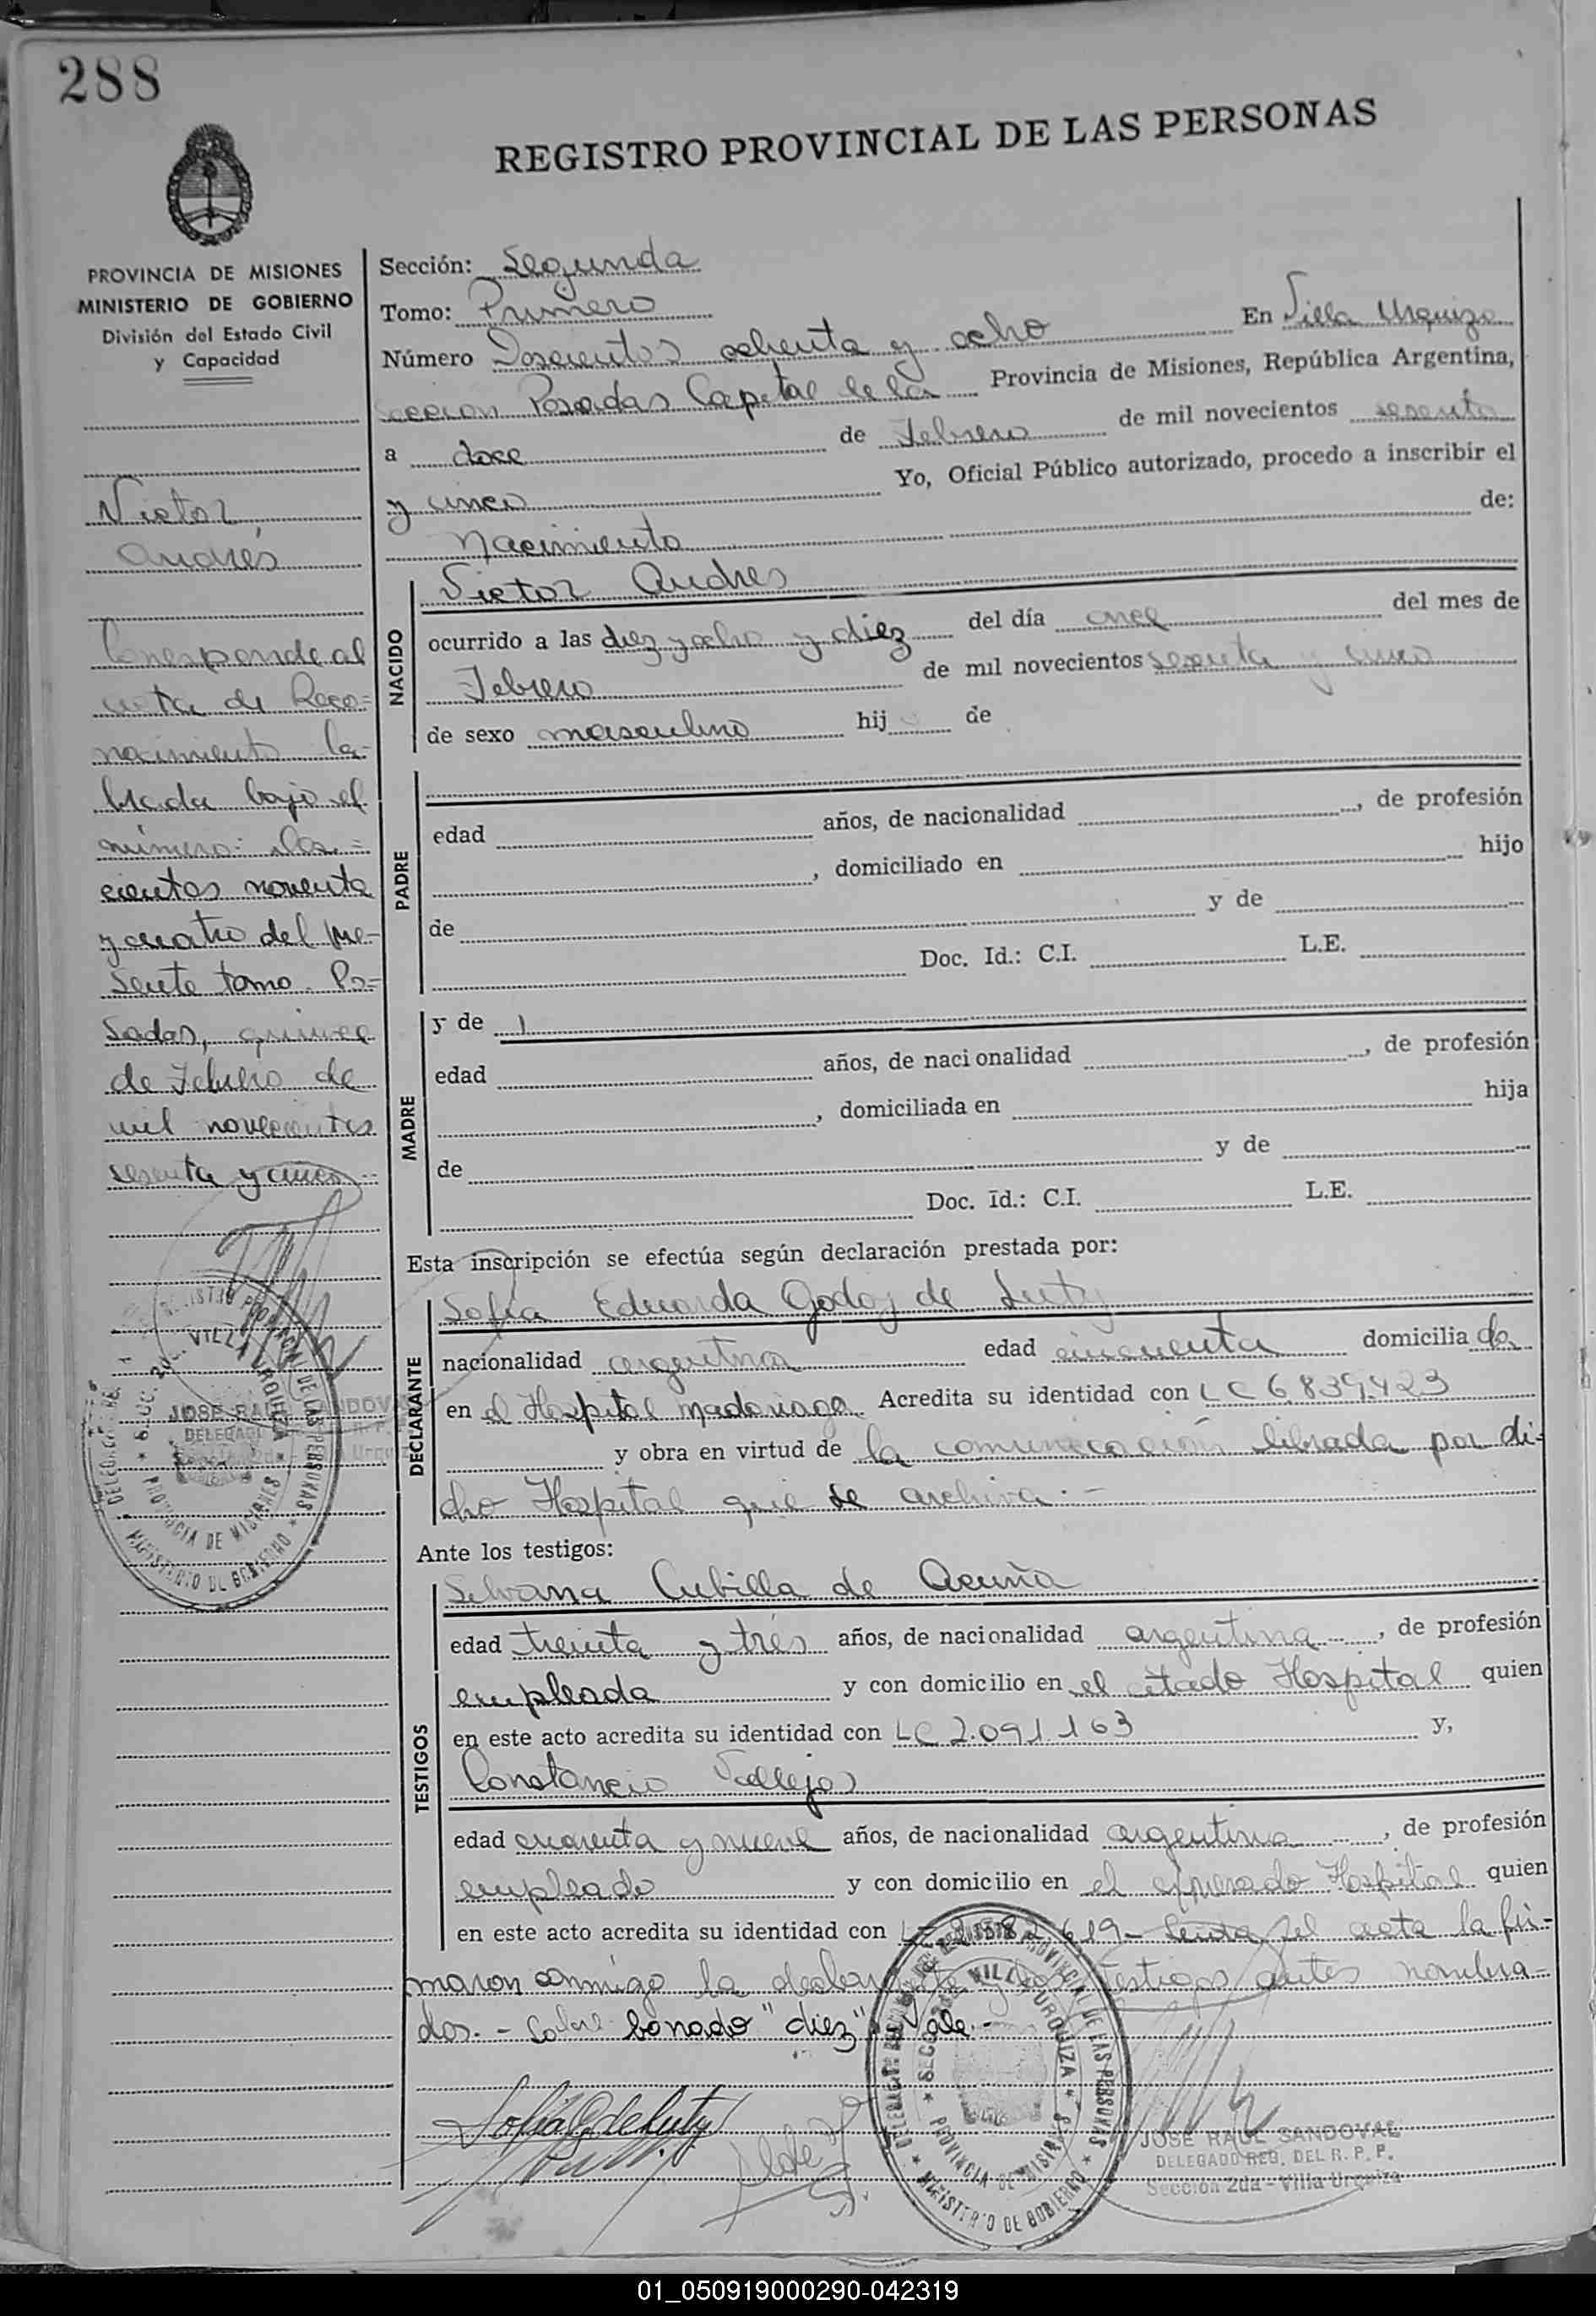 288
REGISTRO PROVINCIAL DE LAS PERSONAS
PROVINCIA DE MISIONES
MINISTERIO DE GOBIERNO
División del Estado Civil
y Capacidad
Victor
Andrés
Corresponde al
acta de Reco=
nocimiento la=
brada bajo el
número: dos=
cientos noventa
y cuatro del pre-
sente tomo. Po=
sadas, quince
de Febrero de
mil novecientos
sesenta y cinco
Sección: Segunda
Tomo: Primero
Número Doscientos ochenta y ocho En Villa Urquiza
seccion Posadas Capital de la Provincia de Misiones, República Argentina,
a doce de Febrero de mil novecientos sesenta
y cinco Yo, Oficial Público autorizado, procedo a inscribir el
Nacimiento de:
NACIDO
Victor Andres
ocurrido a las diez y ocho y diez del día once del mes de
Febrero de mil novecientos sesenta y cinco
de sexo masculino hijo de
PADRE
edad años, de nacionalidad , de profesión
, domiciliado en hijo
de y de
Doc. Id.: C.I. L.E.
MADRE
y de
edad años, de nacionalidad , de profesión
, domiciliada en hija
de y de
Doc. Id.: C.I. L.E.
Esta inscripción se efectúa según declaración prestada por:
DECLARANTE
Sofía Eduarda Godoy de Luty
nacionalidad argentina edad cincuenta domiciliada
en el Hospital Madariaga Acredita su identidad con LC 6.839.423
y obra en virtud de la comunicación librada por di=
cho Hospital que se archiva.-
Ante los testigos:
TESTIGOS
Silvana Cubilla de Acuña
edad treinta y tres años, de nacionalidad argentina, de profesión
empleada y con domicilio en el citado Hospital quien
en este acto acredita su identidad con LC 2.091.163 y,
Constancio Vallejos
edad cuarenta y nueve años, de nacionalidad argentina, de profesión
empleado y con domicilio en el Hospital quien
en este acto acredita su identidad con 619- acta la fir=
maron conmigo la testigos antes nombra=
dos.- Sobre borrado "diez" Vale.-
Sofía E de Luty
REGISTRO PROVINCIAL DE LAS PERSONAS
VILLA URQUIZA
PROVINCIA DE MISIONES
MINISTERIO DE GOBIERNO
JOSE RAUL SANDOVAL
DELEGADO REG. DEL R. P. P.
Sección 2da - Villa Urquiza
01_050919000290-042319